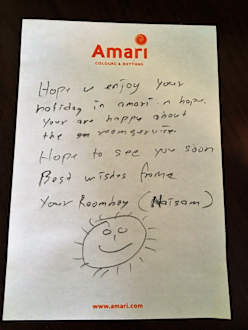 Amari
COLOURS & RHYTHMS
Hope u enjoy your
holiday in amari n hope.
Your are happy about
the roomservice
Hope to see you soon
Best wishes frome
Your Roomboy (Naisam)
www.amari.com